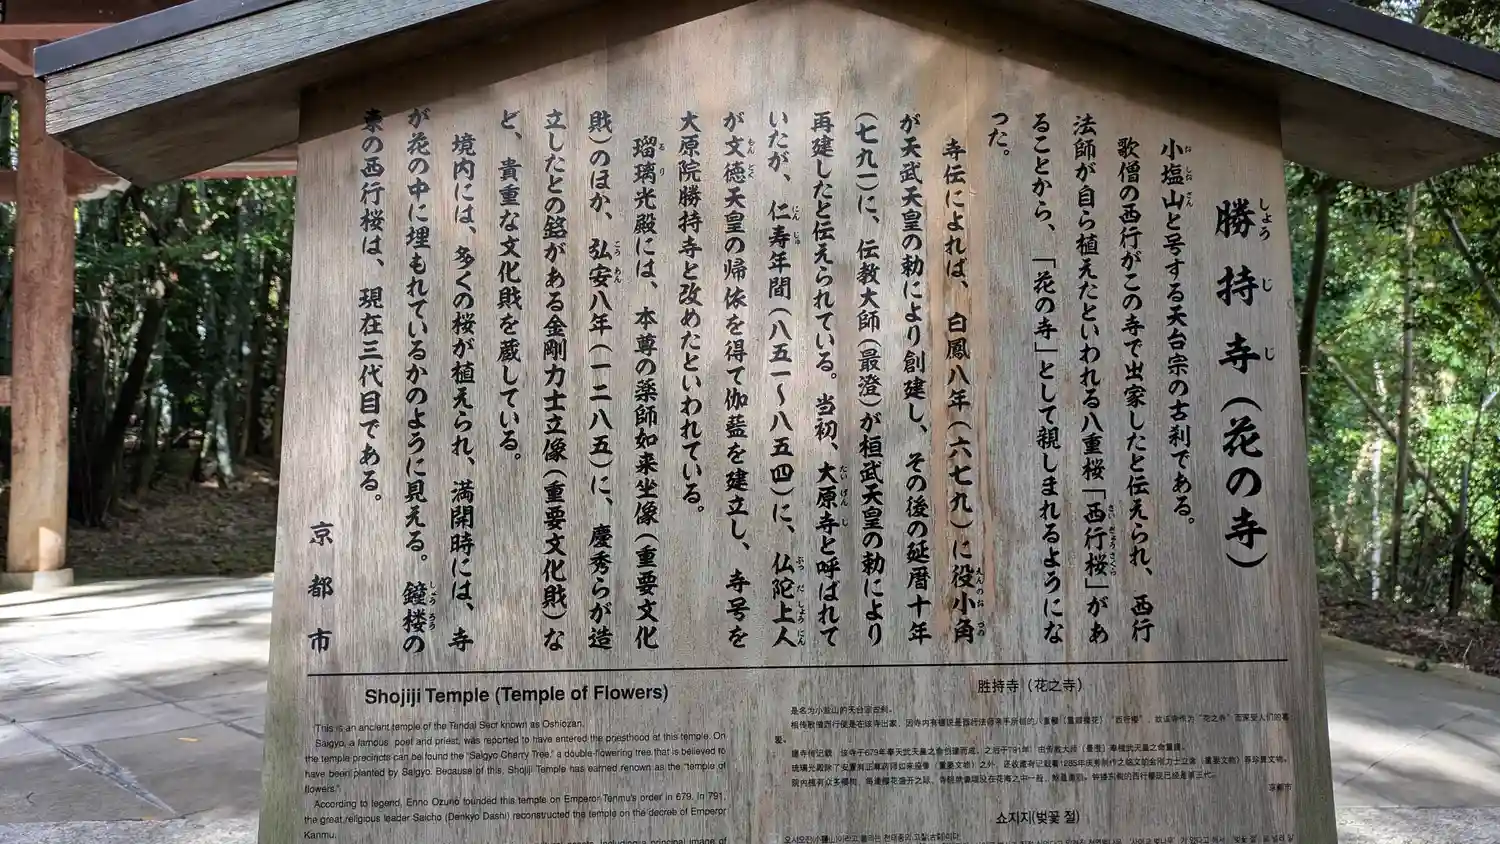 勝持寺（花の寺）
しょう じ じ
小塩山と号する天台宗の古刹である。
歌僧の西行がこの寺で出家したと伝えられ、西行
法師が自ら植えたといわれる八重桜「西行桜」があ
ることから、「花の寺」として親しまれるようにな
った。
寺伝によれば、白鳳八年（六七九）に役小角
が天武天皇の勅により創建し、その後の延暦十年
（七九一）に、伝教大師（最澄）が桓武天皇の勅により
再建したと伝えられている。当初、大原寺と呼ばれて
いたが、仁寿年間（八五一～八五四）に、仏陀上人
が文徳天皇の帰依を得て伽藍を建立し、寺号を
大原院勝持寺と改めたといわれている。
瑠璃光殿には、本尊の薬師如来坐像（重要文化
財）のほか、弘安八年（一二八五）に、慶秀らが造
立したとの銘がある金剛力士立像（重要文化財）な
ど、貴重な文化財を蔵している。
境内には、多くの桜が植えられ、満開時には、寺
が花の中に埋もれているかのように見える。鐘楼の
東の西行桜は、現在三代目である。
京都市
Shojiji Temple (Temple of Flowers)
This is an ancient temple of the Tendai Sect known as Oshiozan.
Saigyo, a famous poet and priest, was reported to have entered the priesthood at this temple. On
the temple precincts can be found the "Saigyo Cherry Tree," a double-flowering tree that is believed to
have been planted by Saigyo. Because of this, Shojiji Temple has earned renown as the "temple of
flowers."
According to legend, Enno Ozuno founded this temple on Emperor Tenmu's order in 679. In 791,
the great religious leader Saicho (Denkyo Daishi) reconstructed the temple on the decree of Emperor
Kanmu.
including a principal image of
胜持寺（花之寺）
是名为小盐山的天台宗古刹。
京都市
쇼지지(벚꽃 절)